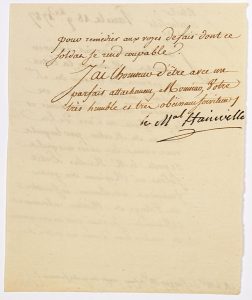 pour remedier aux voyes de fait dont ce
soldat se rend coupable.
J'ai l'honneur d'être avec un
parfait attachement, Monsieur, Votre
très humble et très obeissant serviteur
le Mal